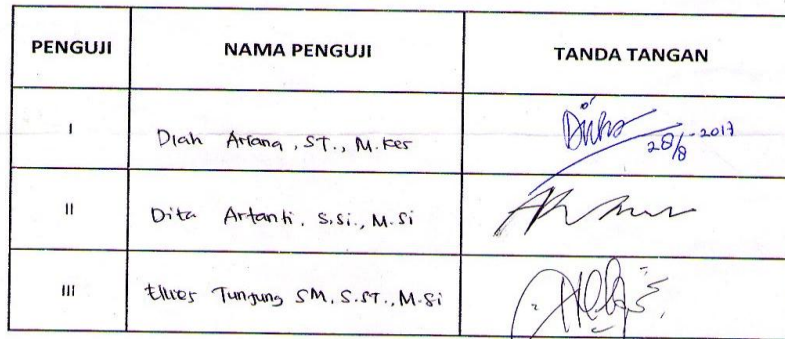 PENGUJI NAMA PENGUJI TANDA TANGAN
I Diah Ariana, ST., M.Kes
28/8-2017
II Dita Artanti, S.Si., M.Si
III Ellies Tunjung SM, S.ST., M.Si